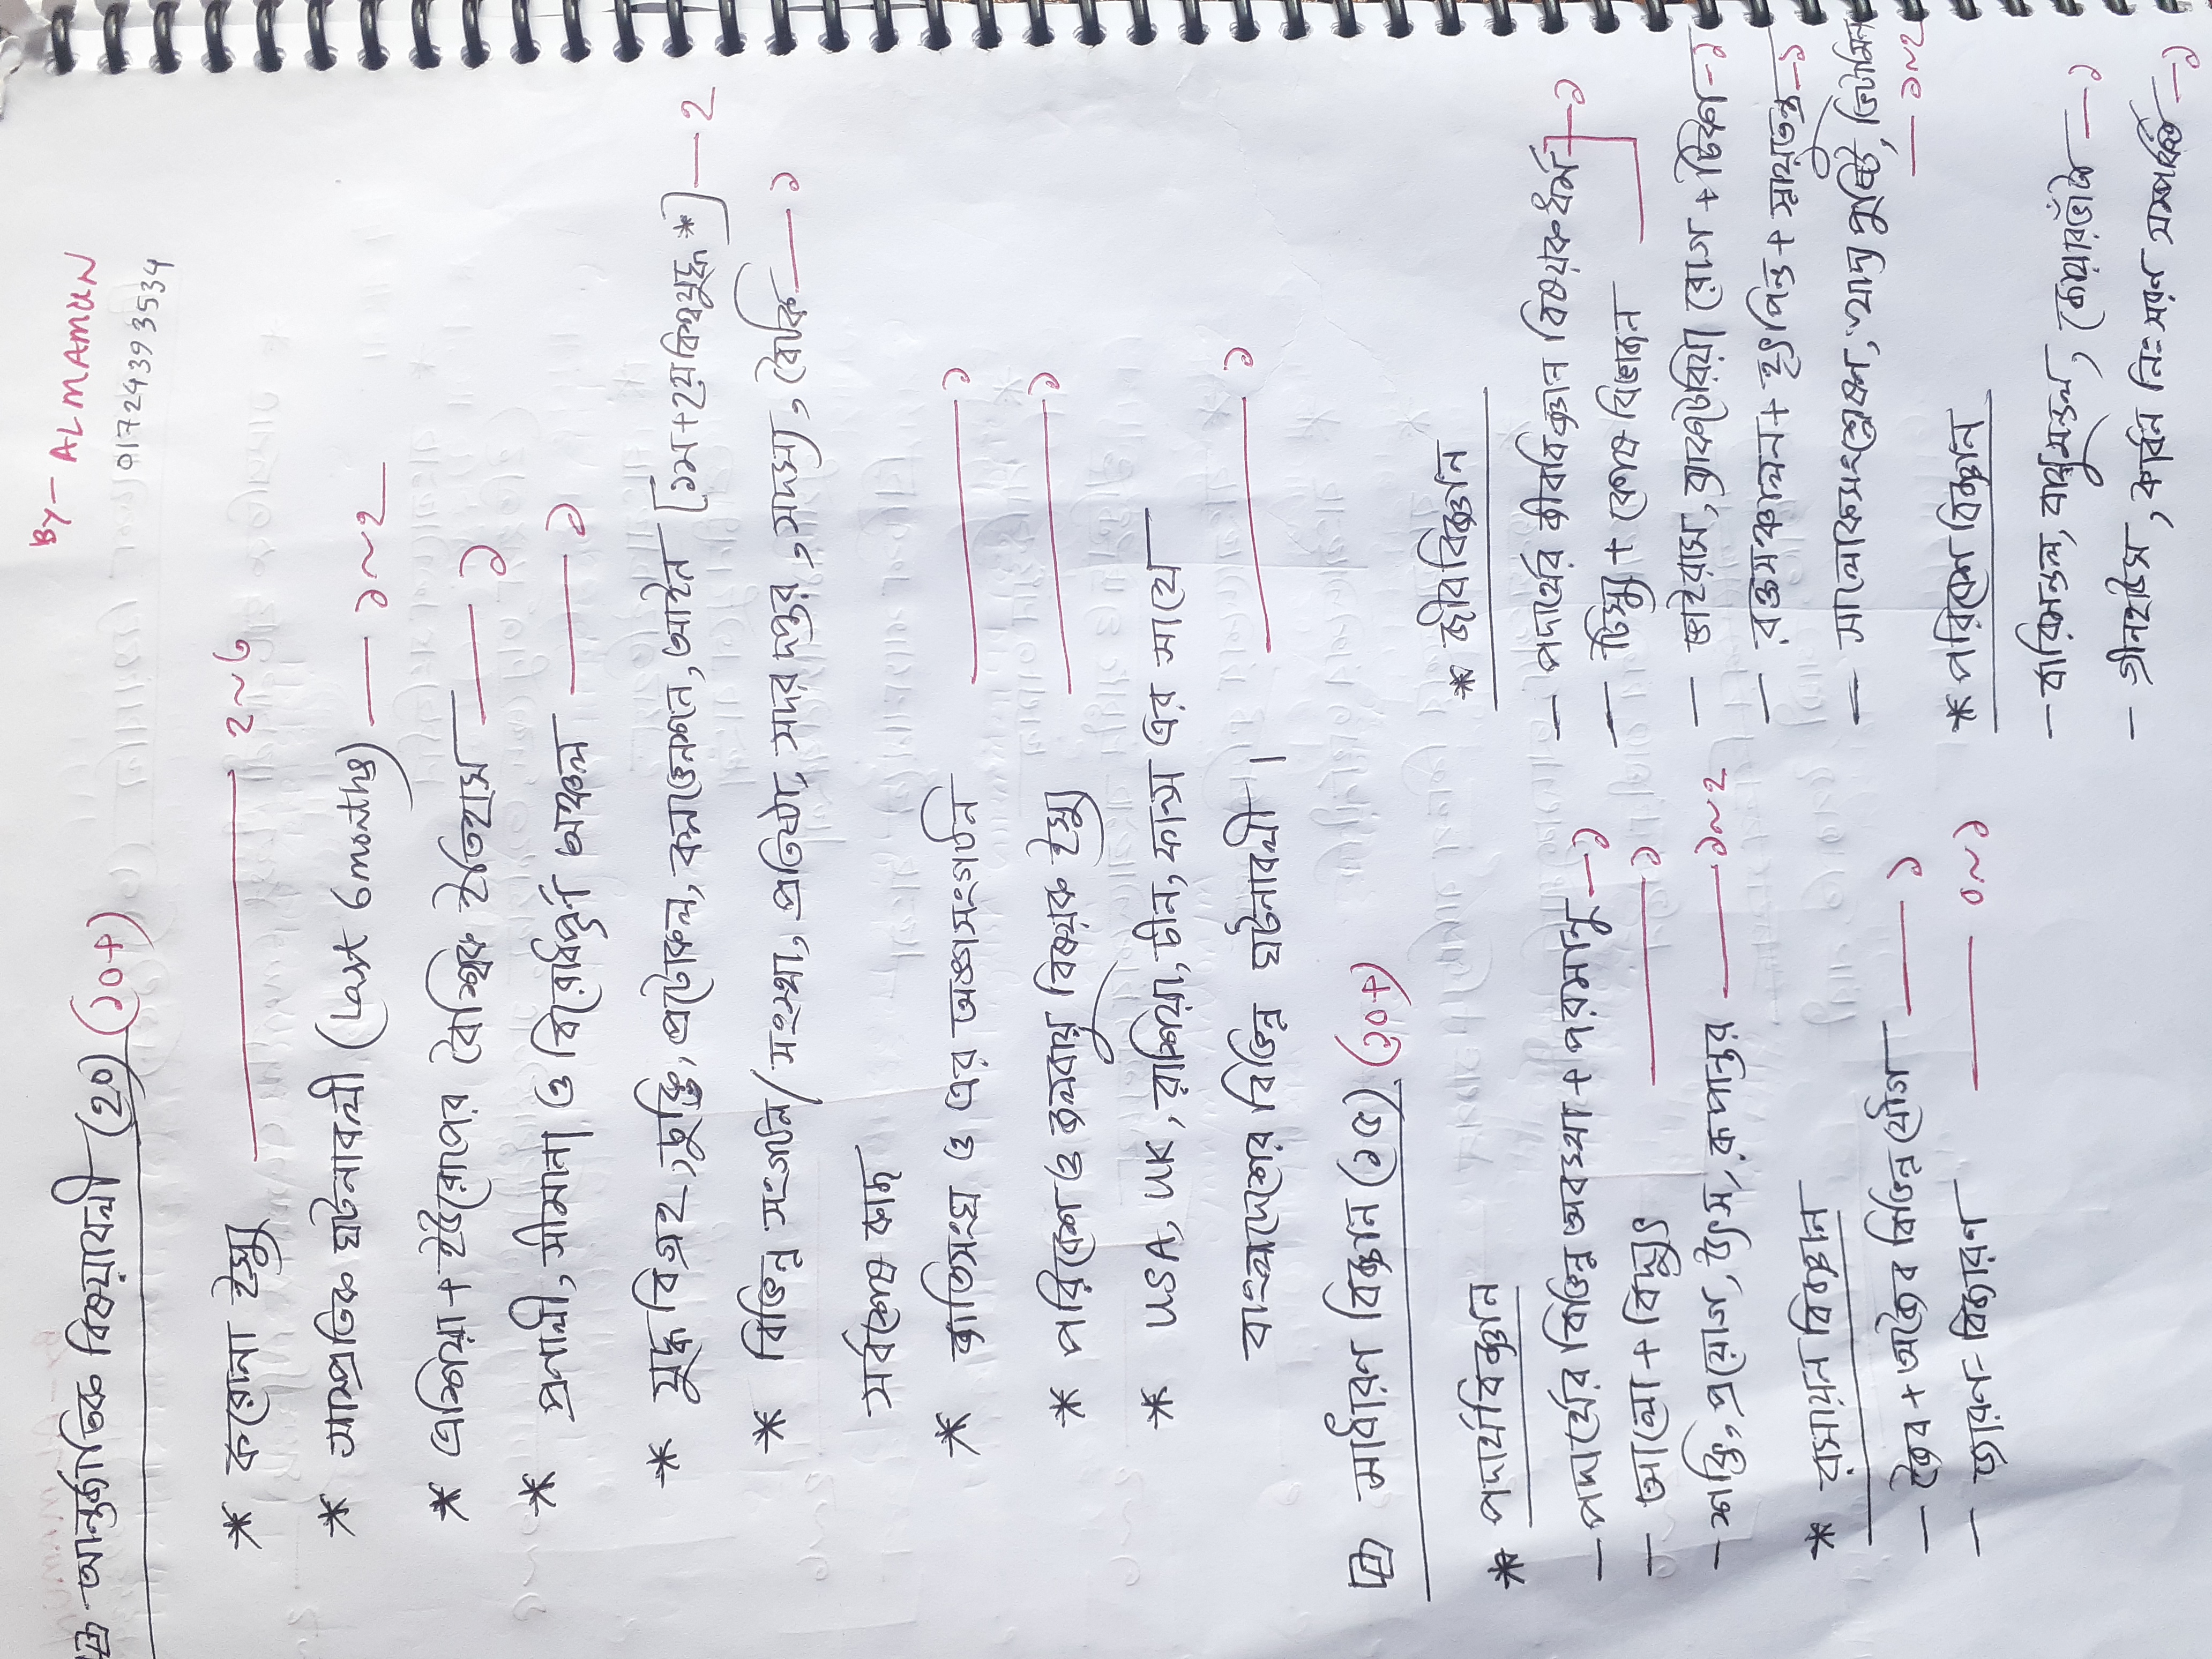 By- ALMAMUN
01724393534
আন্তর্জাতিক বিষয়াবলী (২০) (১০+)
* করোনা ইস্যু — ২~৩
* সাম্প্রতিক ঘটনাবলী (Last 6 months) — ১~২
* এশিয়া + ইউরোপের বৈশ্বিক ইতিহাস — ১
* প্রনালী, সীমানা ও বিরোধপূর্ণ অঞ্চল — ১
* যুদ্ধ বিগ্রহ, চুক্তি, প্রটোকল, কনভেনশন, আইন [১ম+২য় বিশ্বযুদ্ধ *] — ২
* বিভিন্ন সংগঠন/সংস্থা, প্রতিষ্ঠা, সদর দপ্তর, সদস্য, বৈঠক — ১
সর্বশেষ কাজ
* জাতিসংঘ ও এর অঙ্গসংগঠন — ১
* পরিবেশ ও জলবায়ু বিষয়ক ইস্যু — ১
* USA, UK, রাশিয়া, চীন, কানাডা এর সাথে
বাংলাদেশের বিভিন্ন ঘটনাবলী। — ১
সাধারন বিজ্ঞান (১৫) (১০+)
* পদার্থবিজ্ঞান
– পদার্থের বিভিন্ন অবস্থা + পরমানু – ১
– আলো + বিদ্যুৎ — ১
– শক্তি, প্রয়োগ, উৎস, রূপান্তর — ১~২
* রসায়ন বিজ্ঞান
– জৈব + অজৈব বিভিন্ন যৌগ — ১
– জারন-বিজারন — ০~১
* জীববিজ্ঞান
– পদার্থের জীববিজ্ঞান বিষয়ক ধর্ম – ১
– টিস্যু + কোষ বিভাজন
– ভাইরাস, ব্যাকটেরিয়া রোগ + টিকা – ১
– রক্তসঞ্চালন + হৃৎপিন্ড + স্নায়ুতন্ত্র – ১
– সালোকসংশ্লেষন, খাদ্য পুষ্টি, ভিটামিন — ১~২
* পরিবেশ বিজ্ঞান
– বারিমন্ডল, বায়ুমন্ডল, জোয়ারভাটা – ১
– গ্রীনহাউস, কার্বন নিঃসরন সম্পর্কিত – ১